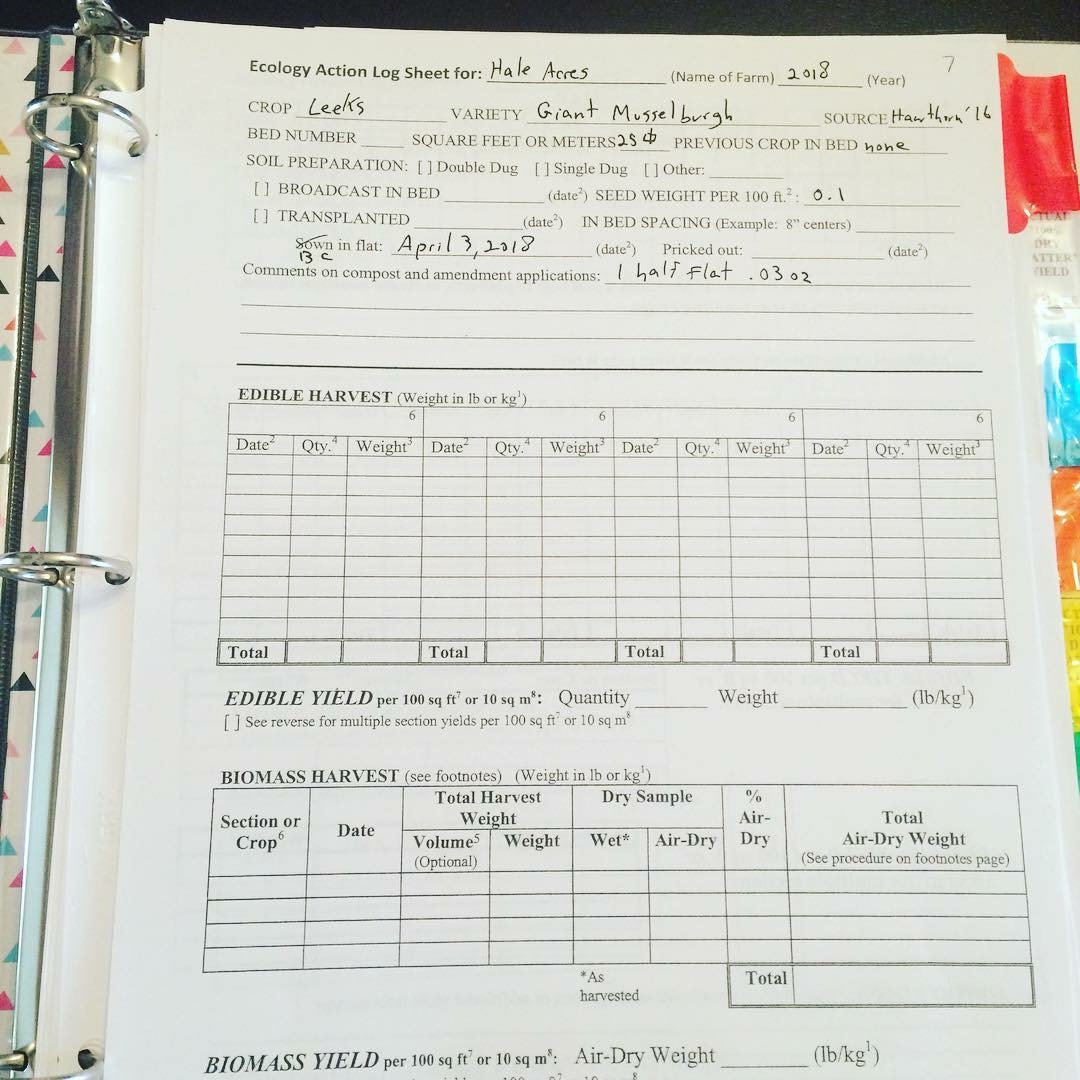 7
Ecology Action Log Sheet for: Hale Acres (Name of Farm) 2018 (Year)
CROP Leeks VARIETY Giant Musselburgh SOURCE Hawthorn '16
BED NUMBER ______ SQUARE FEET OR METERS 25 PREVIOUS CROP IN BED none
SOIL PREPARATION: [ ] Double Dug [ ] Single Dug [ ] Other: ______
[ ] BROADCAST IN BED ______ (date²) SEED WEIGHT PER 100 ft.² : 0.1
[ ] TRANSPLANTED ______ (date²) IN BED SPACING (Example: 8" centers) ______
Sown in flat: April 3, 2018 (date²) Pricked out: ______ (date²)
BC
Comments on compost and amendment applications: 1 half flat .03 oz
EDIBLE HARVEST (Weight in lb or kg¹)
6 6 6 6
Date² Qty.⁴ Weight³ Date² Qty.⁴ Weight³ Date² Qty.⁴ Weight³ Date² Qty.⁴ Weight³
Total Total Total Total
EDIBLE YIELD per 100 sq ft⁷ or 10 sq m⁸: Quantity ______ Weight ______ (lb/kg¹)
[ ] See reverse for multiple section yields per 100 sq ft⁷ or 10 sq m⁸
BIOMASS HARVEST (see footnotes) (Weight in lb or kg¹)
Section or Crop⁶
Date
Total Harvest Weight
Volume⁵ (Optional)
Weight
Dry Sample
Wet*
Air-Dry
% Air-Dry
Total Air-Dry Weight
(See procedure on footnotes page)
*As harvested
Total
BIOMASS YIELD per 100 sq ft⁷ or 10 sq m⁸: Air-Dry Weight ______ (lb/kg¹)